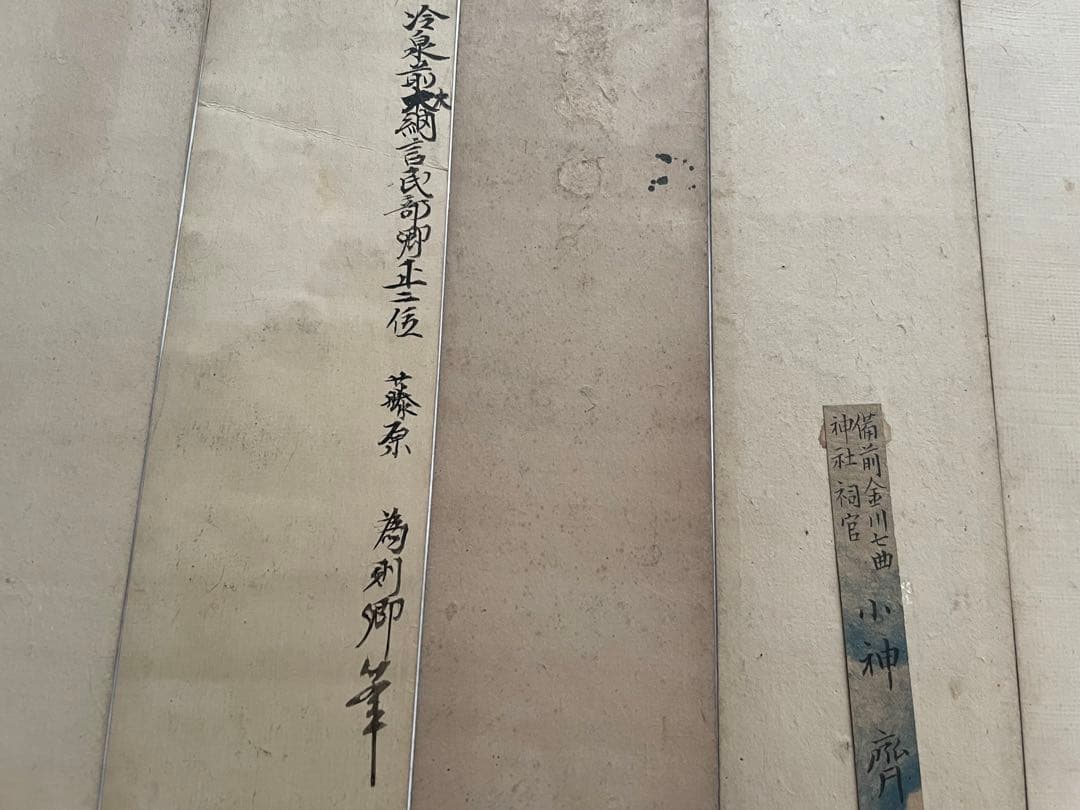 備前金川七曲
神社祠官
小神 齊
冷泉前大納言民部卿正二位 藤原 為則卿筆